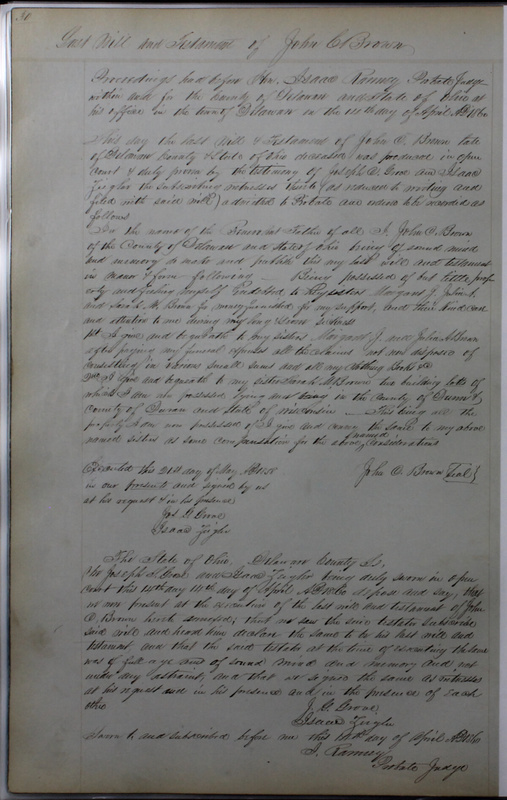 30.
Last Will and Testament of John C Brown
Proceedings had before Hon. Isaac Ranney Probate Judge
within and for the County of Delaware and State of Ohio at
his office in the town of Delaware on the 14th day of April AD 1860
This day the last Will & Testament of John C. Brown late
of Delaware County & State of Ohio deceased was produced in open
Court & duly proven by the testimony of Joseph G. Grove and Isaac
Zeigler the subscribing witnesses thereto (as reduced to writing and
filed with said will) admitted to Probate and ordered to be recorded as
follows
In the name of the Benevolent Father of all I, John C. Brown
of the County of Delaware and State of Ohio being of sound mind
and memory do make and publish this my last will and testament
in manner & form following — Being possessed of but little prop
erty and finding myself Indebted to my sisters Margaret J. Julia A.
and Sarah M. Brown for money furnished for my support, and their kind care
and attention to me during my long & severe sickness
1st I give and bequeath to my sisters Margaret J. and Julia A Brown
after paying my funeral expenses all the claims not now disposed of
consisting in various small sums and all my clothing Books &c
2nd I give and bequeath to my sister Sarah M Brown two building lots of
which I am now possessed lying and being in the County of
County of and State of Wisconsin — This being all the
property I am now possessed of I give and convey the same to my above
named sisters as some compensation for the above named considerations
Executed this 21st day of May AD 1858 John C. Brown {Seal}
in our presence and signed by us
at his request & in his presence
Jos. G. Grove
Isaac Zeigler
The State of Ohio, Delaware County Ss.
We Joseph G. Grove and Isaac Zeigler being duly sworn in open
Court this 14th day 14th day of April AD 1860 depose and say, that
we were present at the execution of the last will and testament of John
C. Brown hereto annexed; that we saw the said testator subscribe
said will and heard him declare the same to be his last will and
testament and that the said testator at the time of executing the same
was of full age and of sound mind and memory and not
under any restraint, and that we signed the same as witnesses
at his request and in his presence and in the presence of each
other
J. G. Grove
Isaac Zeigler
Sworn to and subscribed before me this 14th day of April AD 1860
I. Ranney
Probate Judge